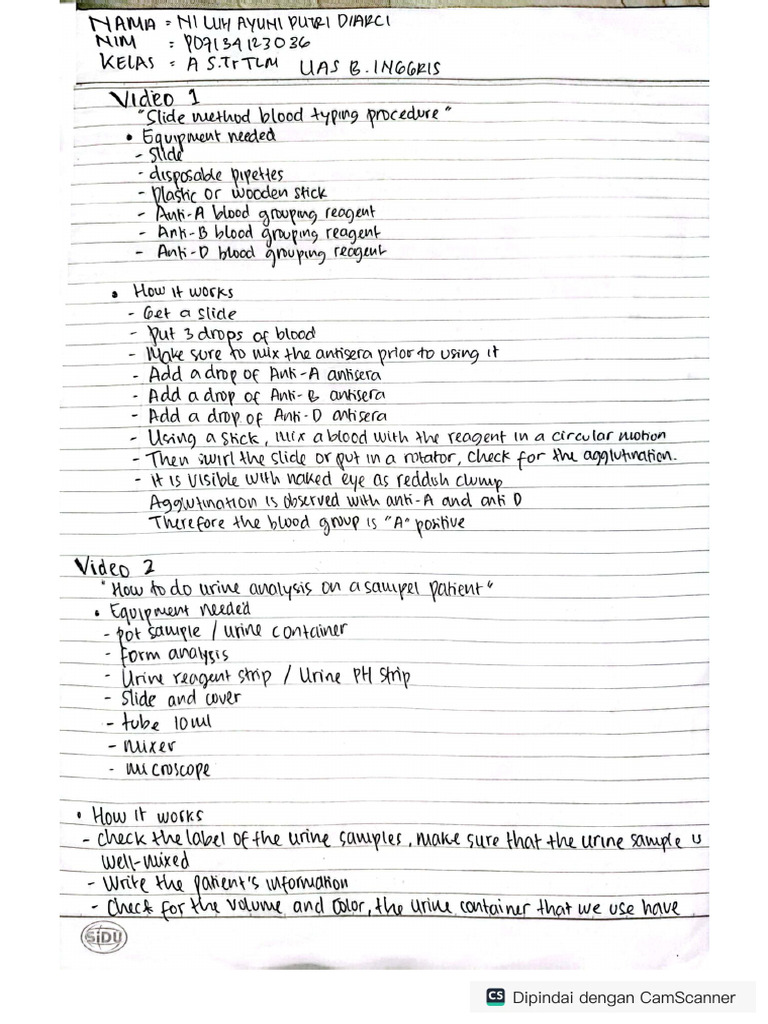 NAMA = NI LUH AYUNI PUTRI DIARCI
NIM : P07134123036
KELAS = A S.Tr TLM UAS B. INGGRIS
Video 1
"Slide method blood typing procedure"
• Equipment needed
- Slide
- disposable pipettes
- Plastic or wooden stick
- Anti-A blood grouping reagent
- Anti-B blood grouping reagent
- Anti-D blood grouping reagent
• How it works
- Get a slide
- Put 3 drops of blood
- Make sure to mix the antisera prior to using it
- Add a drop of Anti-A antisera
- Add a drop of Anti-B antisera
- Add a drop of Anti-D antisera
- Using a stick, mix a blood with the reagent in a circular motion
- Then swirl the slide or put in a rotator, check for the agglutination.
- it is visible with naked eye as reddish clump
Agglutination is observed with anti-A and anti D
Therefore the blood group is "A" positive
Video 2
"How to do urine analysis on a sampel patient"
• Equipment needed
- pot sample / urine container
- Form analysis
- Urine reagent strip / Urine PH strip
- Slide and cover
- tube 10 ml
- mixer
- microscope
• How it works
- check the label of the urine samples, make sure that the urine sample is
well-mixed
- Write the patient's information
- Check for the volume and color, the urine container that we use have
SiDU
CS Dipindai dengan CamScanner